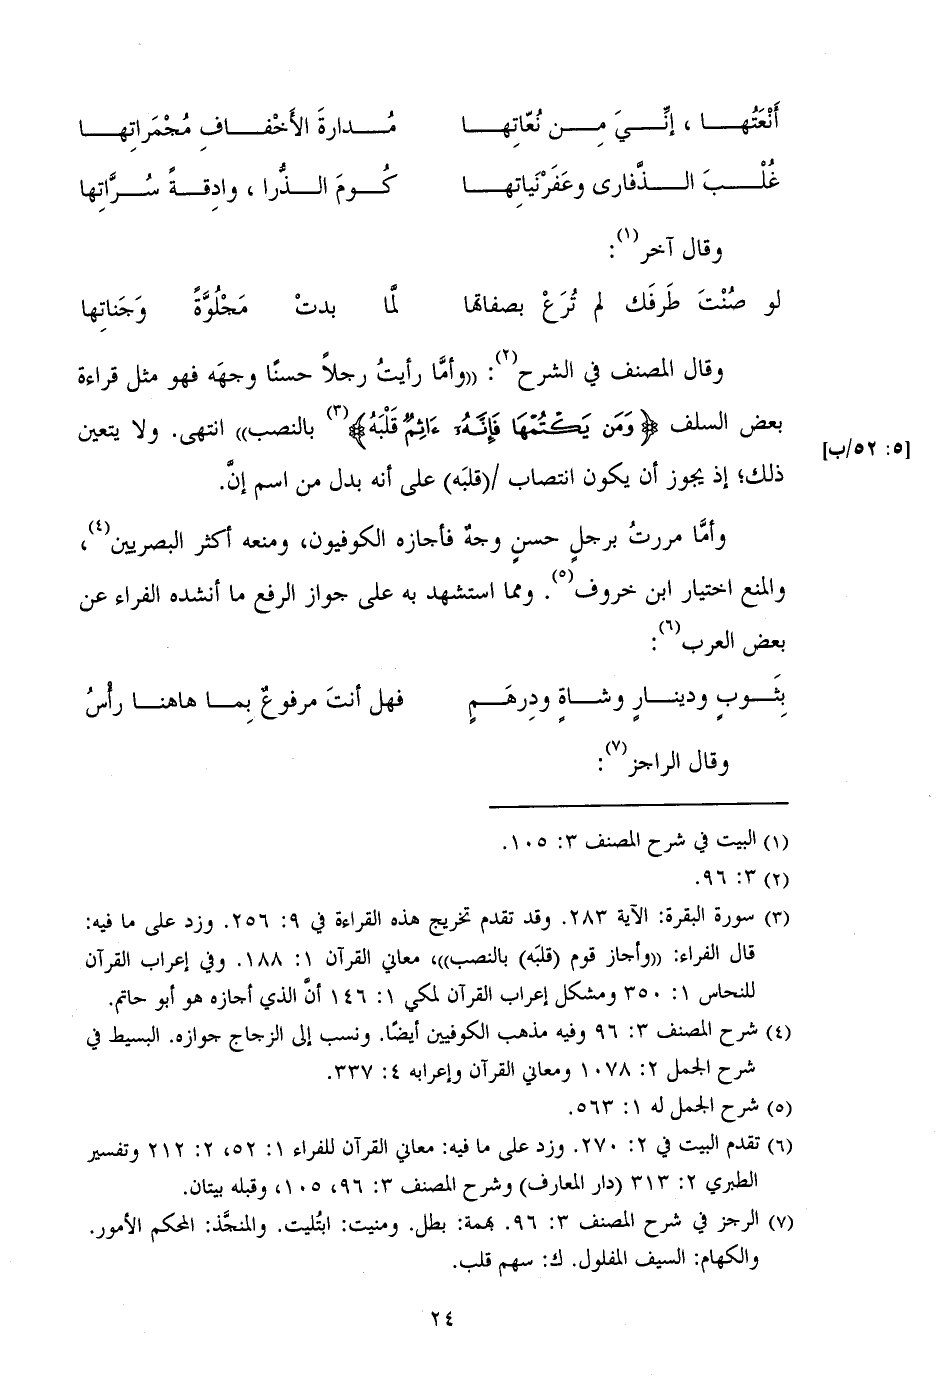 أَنْعَتُهـــا ، إنِّـــيَ مِـــن نُعّاتِهـــا مُـــدارةَ الأَخْفـــافِ مُجْمَراتِهـــا
غُلْـــبَ الـــذَّفارى وعَفَرْنَياتِهـــا كُـــومَ الـــذُّرا ، وادِقـــةً سُـــرَّاتِها
وقال آخر(١):
لو صُنْتَ طَرفَك لم تُرَعْ بصفاتها لمَّا بدتْ مَجْلُوَّةً وَجَناتِها
وقال المصنف في الشرح(٢): ((وأمَّا رأيتُ رجلاً حسنًا وجهَه فهو مثل قراءة
بعض السلف ﴿وَمَن يَكْتُمْهَا فَإِنَّهُۥٓ ءَاثِمٌ قَلْبَهُ﴾(٣) بالنصب)) انتهى. ولا يتعين
[٥: ٥٢/ب]
ذلك؛ إذ يجوز أن يكون انتصاب /(قلبَه) على أنه بدل من اسم إنَّ.
وأمَّا مررتُ برجلٍ حسنٍ وجهٌ فأجازه الكوفيون، ومنعه أكثر البصريين(٤)،
والمنع اختيار ابن خروف(٥). ومما استشهد به على جواز الرفع ما أنشده الفراء عن
بعض العرب(٦):
بِثَـــوبٍ ودينـــارٍ وشـــاةٍ ودِرهَـــمٍ فهل أنتَ مرفوعٌ بِمـــا هاهنـــا رأْسُ
وقال الراجز(٧):
(١) البيت في شرح المصنف ٣: ١٠٥.
(٢) ٣: ٩٦.
(٣) سورة البقرة: الآية ٢٨٣. وقد تقدم تخريج هذه القراءة في ٩: ٢٥٦. وزد على ما فيه:
قال الفراء: ((وأجاز قوم (قلبَه) بالنصب))، معاني القرآن ١: ١٨٨. وفي إعراب القرآن
للنحاس ١: ٣٥٠ ومشكل إعراب القرآن لمكي ١: ١٤٦ أنَّ الذي أجازه هو أبو حاتم.
(٤) شرح المصنف ٣: ٩٦ وفيه مذهب الكوفيين أيضًا. ونسب إلى الزجاج جوازه. البسيط في
شرح الجمل ٢: ١٠٧٨ ومعاني القرآن وإعرابه ٤: ٣٣٧.
(٥) شرح الجمل له ١: ٥٦٣.
(٦) تقدم البيت في ٢: ٢٧٠. وزد على ما فيه: معاني القرآن للفراء ١: ٥٢، ٢: ٢١٢ وتفسير
الطبري ٢: ٣١٣ (دار المعارف) وشرح المصنف ٣: ٩٦، ١٠٥، وقبله بيتان.
(٧) الرجز في شرح المصنف ٣: ٩٦. بهمة: بطل. ومنيت: ابتُليت. والمنجَّذ: المحكم الأمور.
والكهام: السيف المفلول. ك: سهم قلب.
٢٤